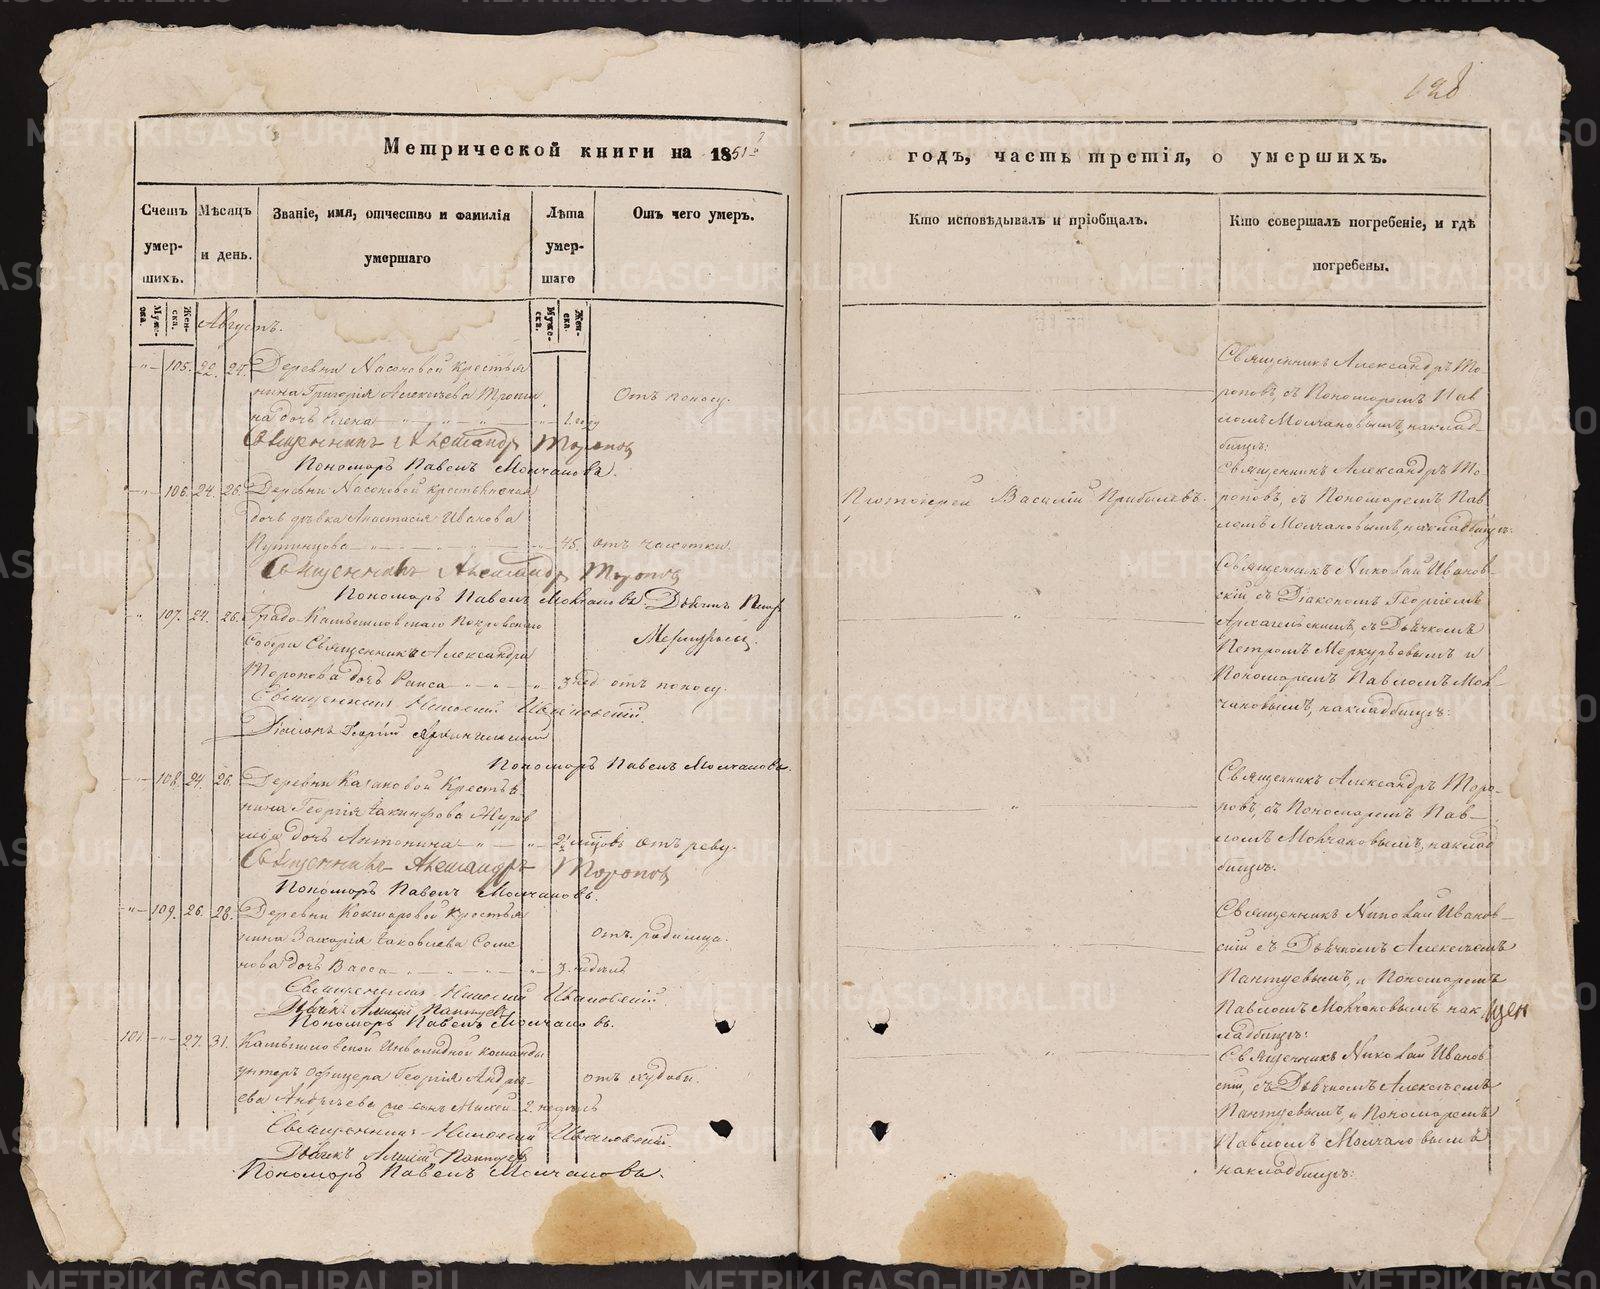 128
Метрической книги на 1851й
годъ, часть третія, о умершихъ.
Счетъ умер- шихъ.
Мѣсяцъ и день.
Званіе, имя, отчество и фамилія умершаго
Лѣта умер- шаго
Отъ чего умеръ.
Кто исповѣдывалъ и пріобщалъ.
Кто совершалъ погребеніе, и гдѣ погребены.
Муже- ска.
Жен- ска.
Муже- ска.
Жен- ска.
Августъ.
105. 22. 24. Деревни Насоновой крестья
нина Григорія Алексѣева
на дочь Елена 1 году Отъ поносу.
Священникъ Александръ Торопов
Пономарь Павелъ Молчановъ.
Священникъ Александръ То
роповъ, съ Пономаремъ Пав
ломъ Молчановымъ, наклад-
бищѣ:
106. 24. 26. Деревни Насоновой крестьянская
дочь дѣвка Анастасія Иванова
Путинцова 45. отъ чахотки.
Священникъ Александръ Торопов
Пономарь Павелъ Молчановъ Дьячекъ Петръ
Меркурьевъ
Протоіерей Василій Прибылевъ.
Священникъ Александръ То
роповъ, съ Пономаремъ Пав
ломъ Молчановымъ, накладбищѣ:
107. 24. 26. Градо Камышловскаго Покровскаго
Собора Священника Александра
Торопова дочь Раиса 3 нед отъ поносу.
Священникъ Николай Ивановскій
Діаконъ Георгій Архангельскій
Пономарь Павелъ Молчановъ.
Священникъ Николай Иванов-
скій, съ Діакономъ Георгіемъ
Архангельскимъ, съ Дьячкомъ
Петромъ Меркурьевымъ и
Пономаремъ Павломъ Мол-
чановымъ, накладбищѣ:
108. 24. 26. Деревни Казаковой Крестья
нина Георгія Іакинфова
дочь Антонина 2½ мѣсцовъ отъ реву.
Священникъ Александръ Торопов
Пономарь Павелъ Молчановъ.
Священникъ Александръ Торо-
повъ, съ Пономаремъ Пав-
ломъ Молчановымъ, наклад
бищѣ.
109. 26. 28. Деревни Кокшаровой Крестья
нина Захарія Іаковлева Семе
нова дочь Васса 3. недѣль отъ родимца.
Священникъ Николай Ивановскій
Дьячекъ Алексій Пантуевъ
Пономарь Павелъ Молчановъ.
Священникъ Николай Иванов-
скій съ Дьячкомъ Алексѣемъ
Пантуевымъ, и Пономаремъ
Павломъ Молчановымъ нак
ладбищѣ:
101. 27. 31. Камышловской Инвалидной команды
унтеръ офицера Георгія Андрѣ-
ева сынъ 2. недѣль отъ худобы.
Священникъ Николай Ивановскій
Дьячекъ Алексій Пантуевъ
Пономарь Павелъ Молчановъ.
Священникъ Николай Иванов
скій, съ Дьячкомъ Алексѣемъ
Пантуевымъ, и Пономаремъ
Павломъ Молчановымъ
накладбищѣ:
METRIKI.GASO-URAL.RU